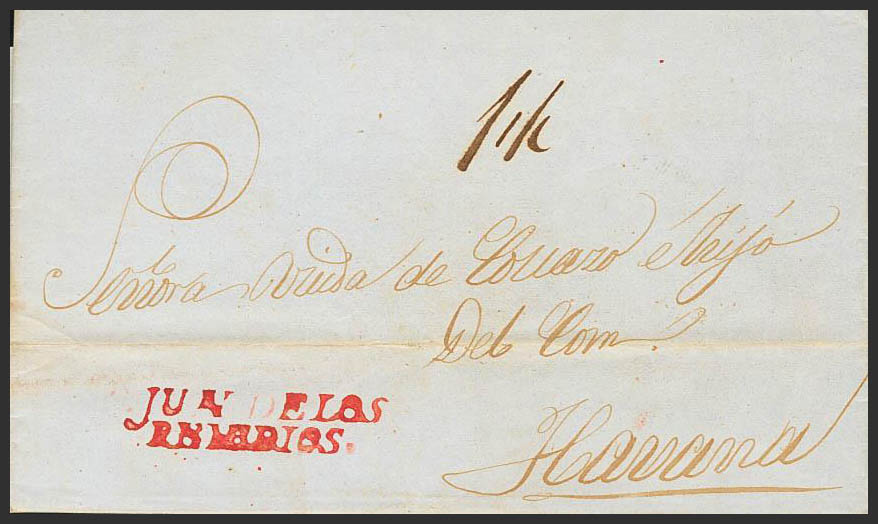 Señora Viuda de Couazo é hijo
Del Com.
Havana
JUN DE LOS
REMEDIOS.